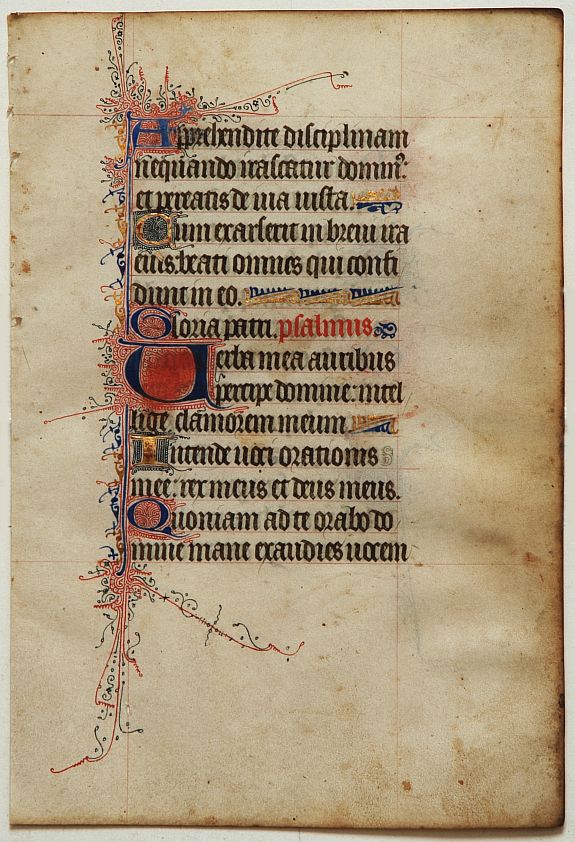 Apprehendite disciplinam
nequando irascatur dominꝰ:
et pereatis de uia iusta.
Cum exarserit in breui ira
eius: beati omnes qui confi
dunt in eo.
Gloria patri. psalmus
Uerba mea auribus
percipe domine: intel
lige clamorem meum
Intende uoci orationis
mee: rex meus et deus meus.
Quoniam ad te orabo do
mine mane exaudies uocem